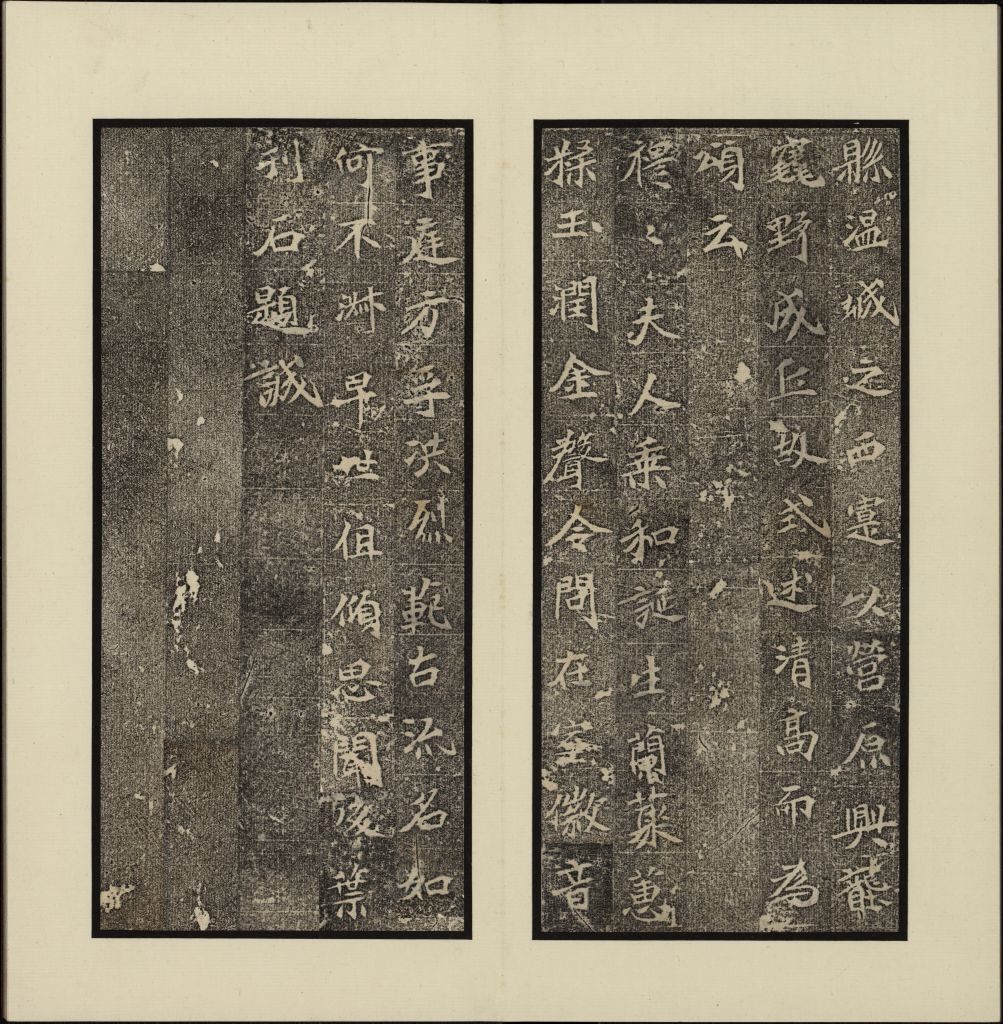 縣温城之西以營原興
野成丘故式述清高而為
頌云
穆〻夫人乗和誕生蘭葉蕙
糅玉潤金聲令問在室徽音
事庭方孚洪烈範古流名如
何不淋早世徂傾思聞後葉
刋石題誠